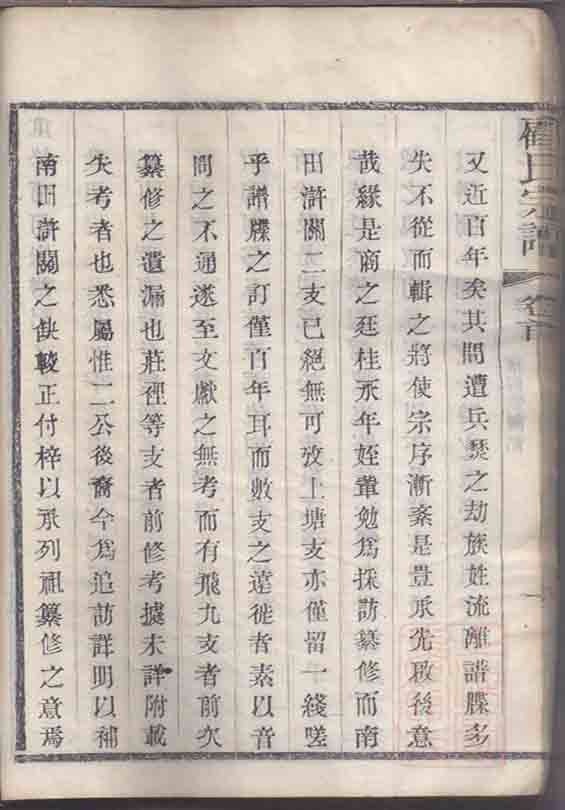 顧氏宗譜 卷首
又近百年矣其間遭兵燹之劫族姓流離譜牒多
失不從而輯之將使宗序漸紊是豈承先啟後意
哉緣是商之廷桂永年姪輩勉為採訪纂修而南
田滸關二支已絕無可攷上塘支亦僅留一綫嗟
乎譜牒之訂僅百年耳而數支之遠徙者素以音
問之不通遂至文獻之無考而有飛九支者前次
纂修之遺漏也莊裡等支者前修考據未詳附載
失考者也悉屬惟二公後裔今為追訪詳明以補
南田滸關之缺較正付梓以承列祖纂修之意焉